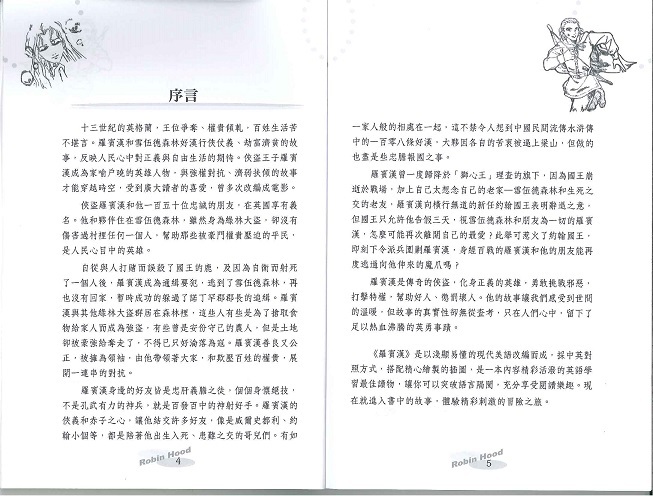 序言
十三世紀的英格蘭，王位爭奪、權貴傾軋，百姓生活苦
不堪言。羅賓漢和雪伍德森林好漢行俠仗義、劫富濟貧的故
事，反映人民心中對正義與自由生活的期待。俠盜王子羅賓
漢成為家喻戶曉的英雄人物，與強權對抗、濟弱扶傾的故事
才能穿越時空，受到廣大讀者的喜愛，曾多次改編成電影。
俠盜羅賓漢和他一百五十位忠誠的朋友，在英國享有義
名。他和夥伴住在雪伍德森林，雖然身為綠林大盜，卻沒有
傷害過村裡任何一個人，幫助那些被豪門權貴壓迫的平民，
是人民心目中的英雄。
自從與人打賭而誤殺了國王的鹿，及因為自衛而射死
了一個人後，羅賓漢成為通緝要犯，逃到了雪伍德森林，再
也沒有回家，暫時成功的躲過了諾丁罕郡郡長的追緝。羅賓
漢與其他綠林大盜群居在森林裡，這些人有些是為了搶取食
物給家人而成為強盜，有些曾是安份守己的農人，但是土地
卻被豪強給奪走了，不得已只好淪落為寇。羅賓漢善良又公
正，被擁為領袖，由他帶領著大家，和欺壓百姓的權貴，展
開一連串的對抗。
羅賓漢身邊的好友皆是忠肝義膽之徒，個個身懷絕技，
不是孔武有力的神兵，就是百發百中的神射好手。羅賓漢的
俠義和赤子之心，讓他結交許多好友，像是威爾史都利、約
翰小個等，都是陪著他出生入死、患難之交的哥兒們。有如
Robin Hood
4
一家人般的相處在一起，這不禁令人想到中國民間流傳水滸傳
中的一百零八條好漢，大夥因各自的苦衷被逼上梁山，但做的
也盡是些忠膽報國之事。
羅賓漢曾一度歸降於「獅心王」理查的旗下，因為國王崩
逝於戰場，加上自己太想念自己的老家—雪伍德森林和生死之
交的老友，羅賓漢向橫行無道的新任約翰國王表明辭退之意。
但國王只允許他告假三天，視雪伍德森林和朋友為一切的羅賓
漢，怎麼可能再次離開自己的最愛？此舉可惹火了約翰國王，
即刻下令派兵圍剿羅賓漢，身經百戰的羅賓漢和他的朋友能再
度逃過向他伸來的魔爪嗎？
羅賓漢是傳奇的俠盜，化身正義的英雄，勇敢挑戰邪惡，
打擊特權，幫助好人、懲罰壞人。他的故事讓我們感受到世間
的溫暖，但故事的真實性卻無從查考，只在人們心中，留下了
足以熱血沸騰的英勇事蹟。
《羅賓漢》是以淺顯易懂的現代美語改編而成，採中英對
照方式，搭配精心繪製的插圖，是一本內容精彩活潑的英語學
習最佳讀物，讓你可以突破語言隔閡，充分享受閱讀樂趣。現
在就進入書中的故事，體驗精彩刺激的冒險之旅。
Robin Hood
5